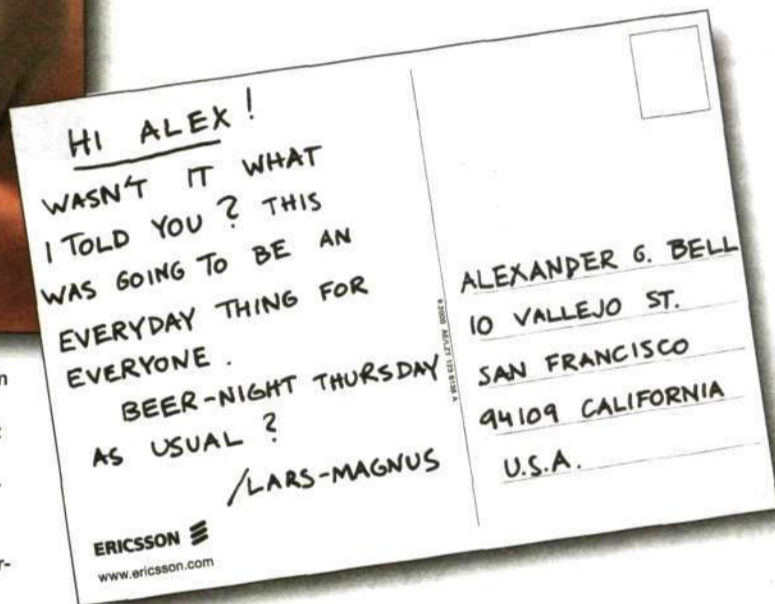 HI ALEX!
WASN'T IT WHAT
I TOLD YOU? THIS
WAS GOING TO BE AN
EVERYDAY THING FOR
EVERYONE.
BEER-NIGHT THURSDAY
AS USUAL?
/LARS-MAGNUS
ERICSSON
www.ericsson.com
ALEXANDER G. BELL
10 VALLEJO ST.
SAN FRANCISCO
94109 CALIFORNIA
U.S.A.